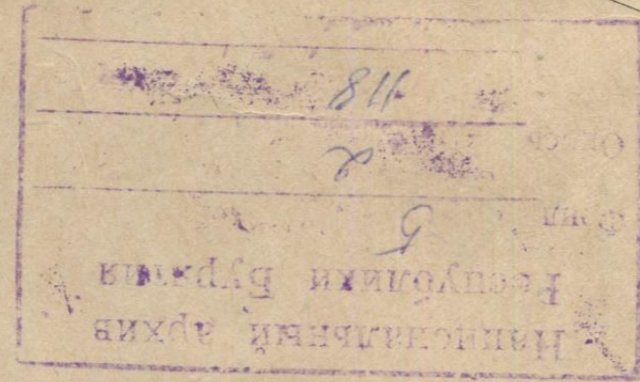 Национальный архив
Республики Бурятия
Фонд 5
Опись 2
118